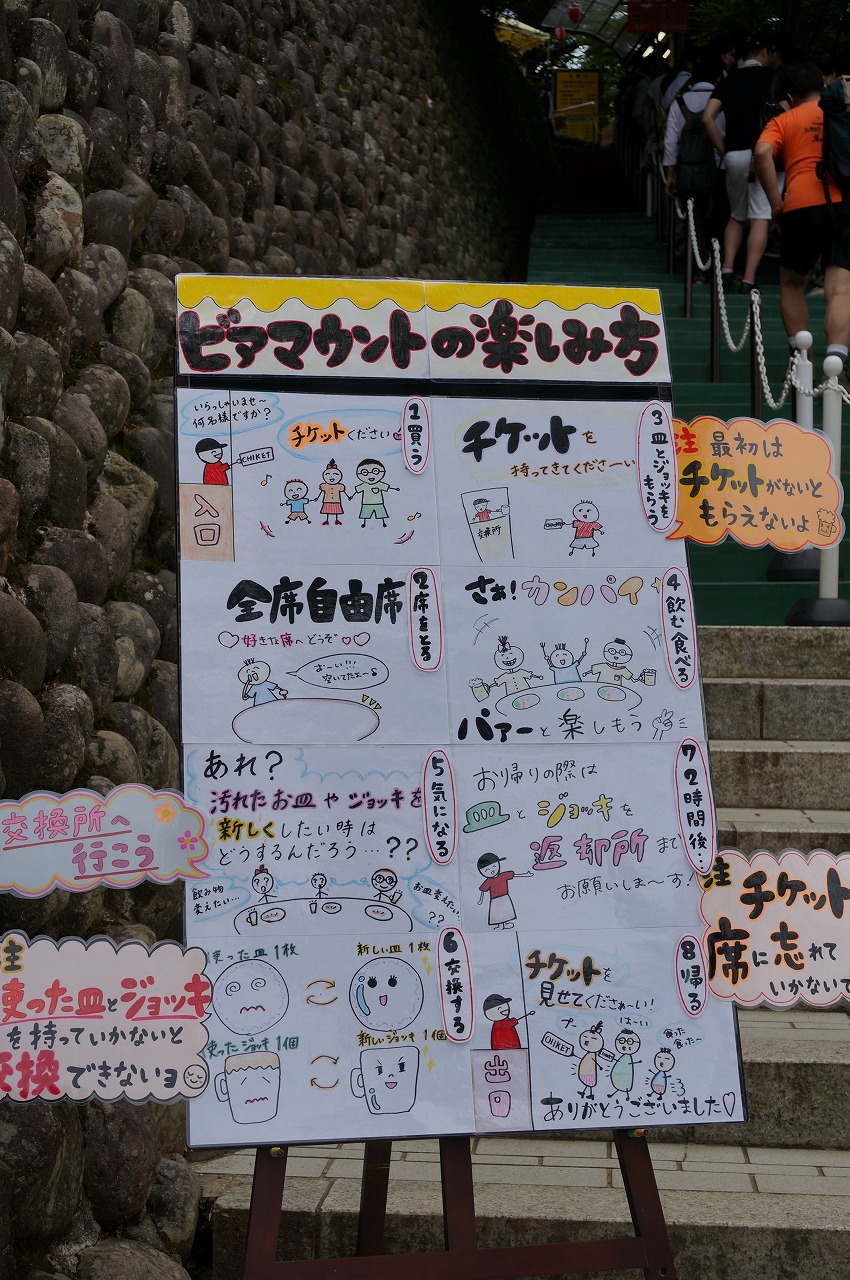 ビアマウントの楽しみ方
1買う
いらっしゃいませ~
何名様ですか?
チケットください
CHIKET
入口
2席をとる
全席自由席
好きな席へどうぞ
お~い!!!
空いてたよ~
3皿とジョッキをもらう
チケットを
持ってきてくださーい
交換所
注 最初は
チケットがないと
もらえないよ
4飲む食べる
さぁ!カンパイ
パァーと楽しもう
5気になる
あれ?
汚れたお皿やジョッキを
新しくしたい時は
どうするんだろう…??
飲み物
変えたい…
お皿変えたい
??
交換所へ
行こう
6交換する
使った皿1枚
新しい皿1枚
使ったジョッキ1個
新しいジョッキ1個
注
使った皿とジョッキ
を持っていかないと
交換できないョ
7 2時間後…
お帰りの際は
とジョッキを
返却所まで
お願いしま~す!
注 チケット
席に忘れて
いかないで
8帰る
チケットを
見せてくださぁ~い!
はーい
CHIKET
食った
食った~
出口
ありがとうございました♡